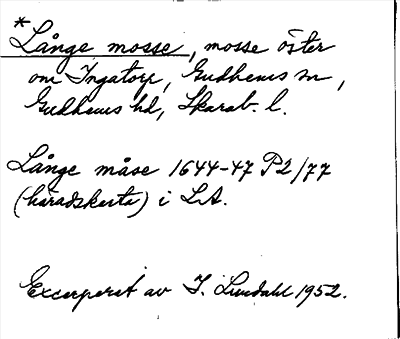 *
Långe mosse, mosse öster
om Ingatorp, Gudhems sn,
Gudhems hd, Skarab. l.
Långe måse 1644-47 P2/77
(häradskarta) i LA.
Excerperat av I. Lundahl 1952.